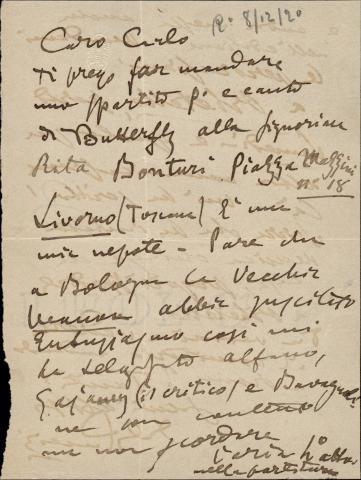 R. 8/12/20
Caro Carlo
Ti prego far mandare
uno spartito p. e canto
di Butterfly alla signorina
Rita Bonturi Piazza Mazzini
n. 18
Livorno (Toscana) È una
mia nepote – Pare che
a Bologna la vecchia
abbia suscitato
Entusiasmo così mi
ha telegrafato alfano,
Gajanus (il critico) e Bavagnoli
ne son contento
ma non scordare
l'aria 2º atto
nella partitura